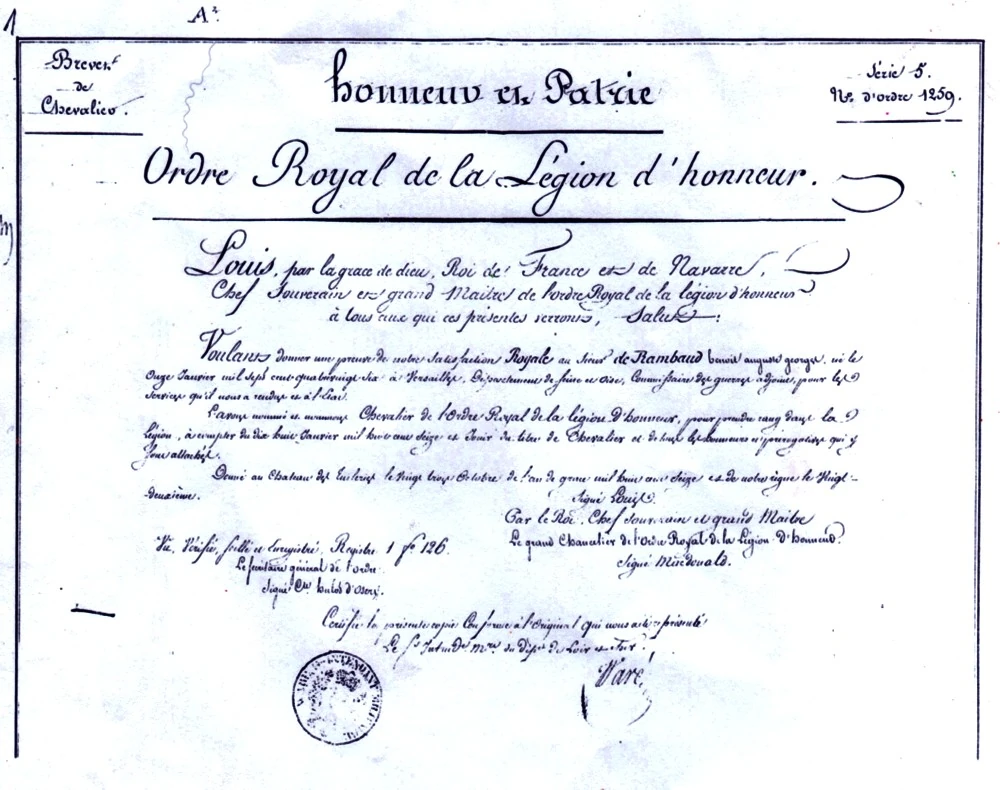 1
Brevet
de
Chevalier.
honneur et Patrie
Série 5.
No. d'ordre 1259.
Ordre Royal de la Légion d'honneur.
Louis, par la grace de dieu, Roi de France et de Navarre,
Chef Souverain et grand Maitre de l'ordre Royal de la légion d'honneur
à tous ceux qui ces présentes verront, Salut:
Voulant donner une preuve de notre Satisfaction Royale au Sieur de Rambaud benoit auguste georges, né le
Onze Janvier mil sept cent quatrevingt six à Versailles, Département de Seine et Oise, Commissaire des guerres adjoint, pour les
services qu'il nous a rendus et à l'état.
L'avons nommé et nommons Chevalier de l'Ordre Royal de la légion d'honneur, pour prendre rang dans la
Légion, à compter du dix huit Janvier mil huit cent Seize et Jouir du titre de Chevalier et de tous les honneurs et prérogatives qui y
sont attachés.
Donné au Chateau des tuileries le Vingt trois Octobre de l'an de grace mil huit cent Seize et de notre règne le Vingt-
deuxième.
Signé Louis.
Par le Roi, Chef Souverain et grand Maitre
Le grand Chancelier de l'Ordre Royal de la Légion d'honneur.
Signé Macdonald.
Vu, Vérifié, scellé et Enregistré, Registre 1 fo 126.
Le secrétaire général de l'ordre
Signé
Certifié la présente copie Conforme à l'Original qui nous a été représenté
Le Sr Intendt mre du dépt de Loir et Cher.
Waré